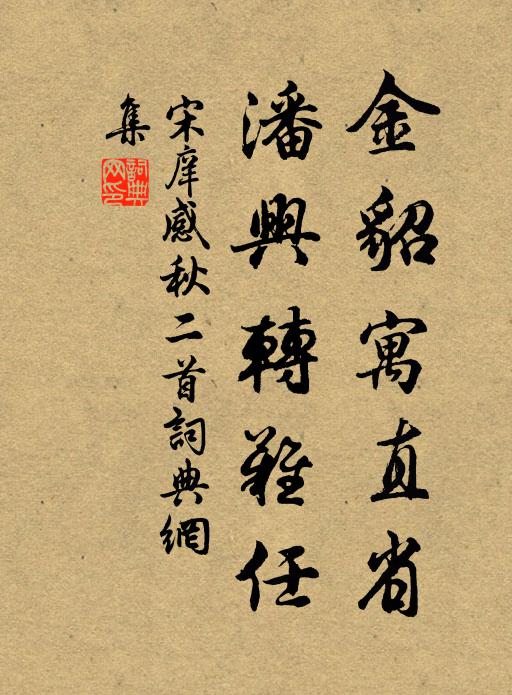 金貂寓直省
潘興轉難任
宋庠感秋二首詞典網
集
詞典
网印